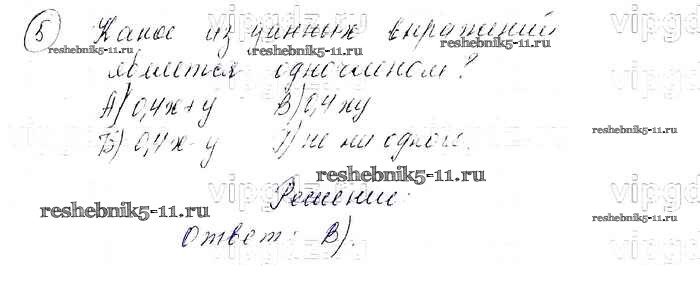 5) Какое из данных выражений
является одночленом?
А) 0,4х+у В) 0,4ху
Б) 0,4х-у Г) ни одного.
Решение:
Ответ: В).
reshebnik5-11.ru
reshebnik5-11.ru
reshebnik5-11.ru
reshebnik5-11.ru
reshebnik5-11.ru
reshebnik5-11.ru